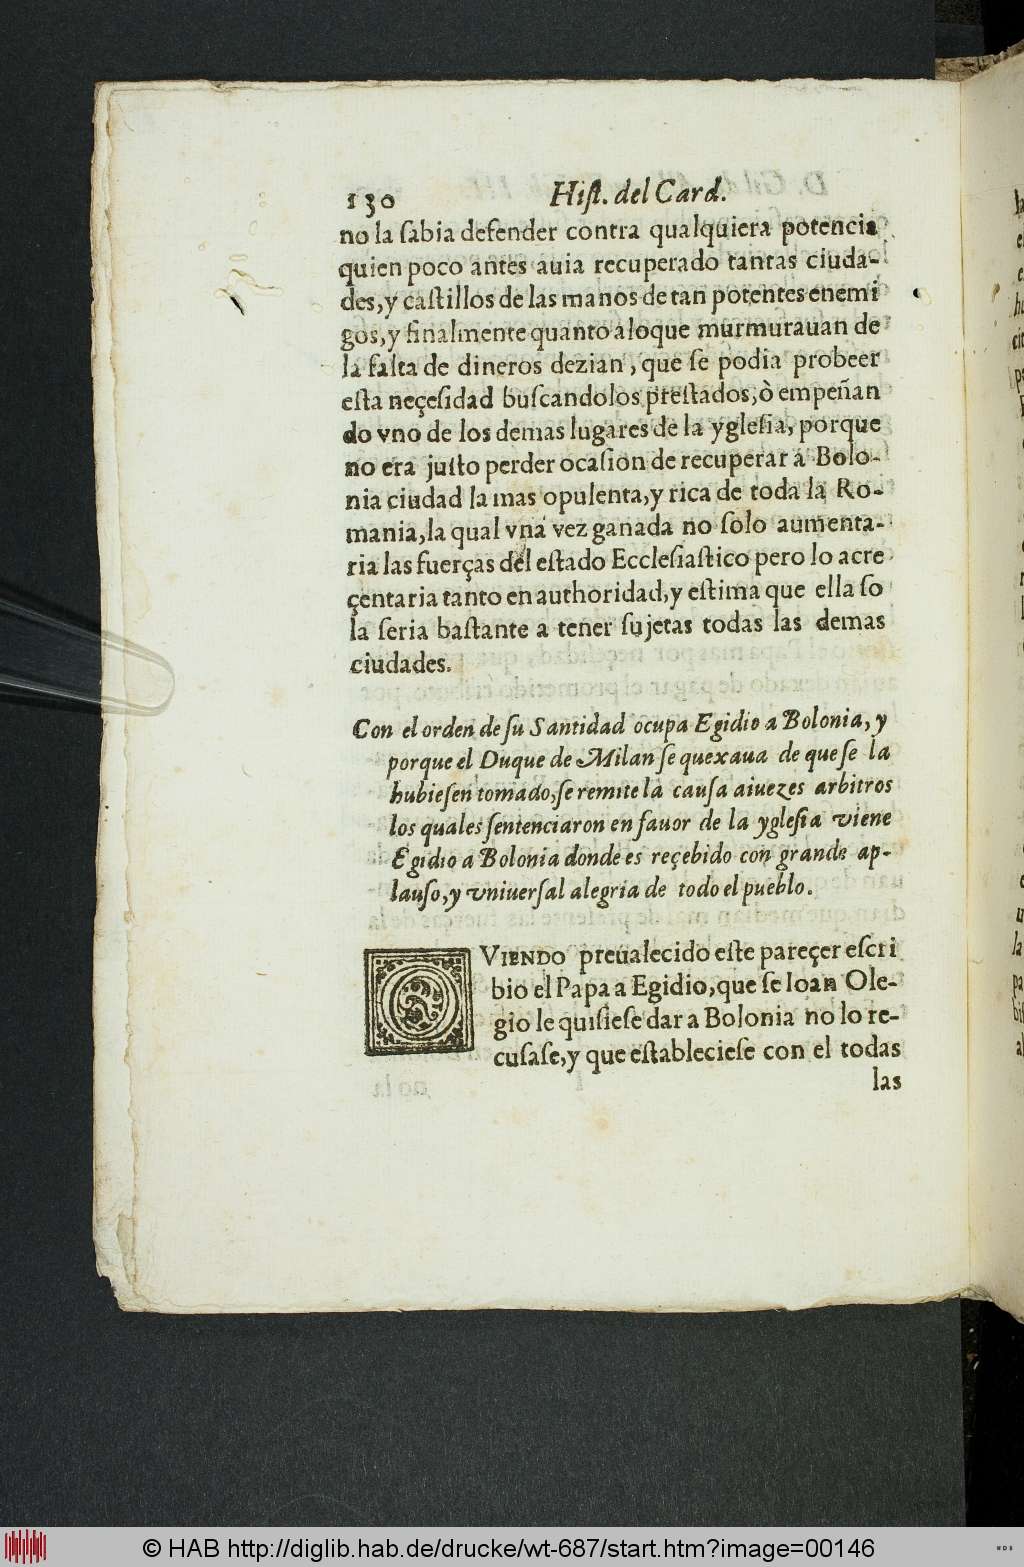 130 Hiſt. del Card.
no la ſabia defender contra qualquiera potencia
quien poco antes auia recuperado tantas ciuda-
des, y caſtillos de las manos de tan potentes enemi
gos, y finalmente quanto aloque murmurauan de
la falta de dineros dezian, que ſe podia probeer
eſta neçeſidad buſcandolos preſtados, ò empeñan
do vno de los demas lugares de la ygleſia, porque
no era juſto perder ocaſion de recuperar à Bolo-
nia ciudad la mas opulenta, y rica de toda la Ro-
mania, la qual vna vez ganada no ſolo aumenta-
ria las fuerças del eſtado Eccleſiaſtico pero lo acre
çentaria tanto en authoridad, y eſtima que ella ſo
la ſeria baſtante a tener ſujetas todas las demas
ciudades.
Con el orden de ſu Santidad ocupa Egidio a Bolonia, y
porque el Duque de Milan ſe quexaua de que ſe la
hubieſen tomado, ſe remite la cauſa aiuezes arbitros
los quales ſentenciaron en fauor de la ygleſia viene
Egidio a Bolonia donde es reçebido con grande ap-
lauſo, y vniuerſal alegria de todo el pueblo.
VIENDO preualecido eſte pareçer eſcri
bio el Papa a Egidio, que ſe Ioan Ole-
gio le quiſieſe dar a Bolonia no lo re-
cuſaſe, y que eſtablecieſe con el todas
las
© HAB http://diglib.hab.de/drucke/wt-687/start.htm?image=00146